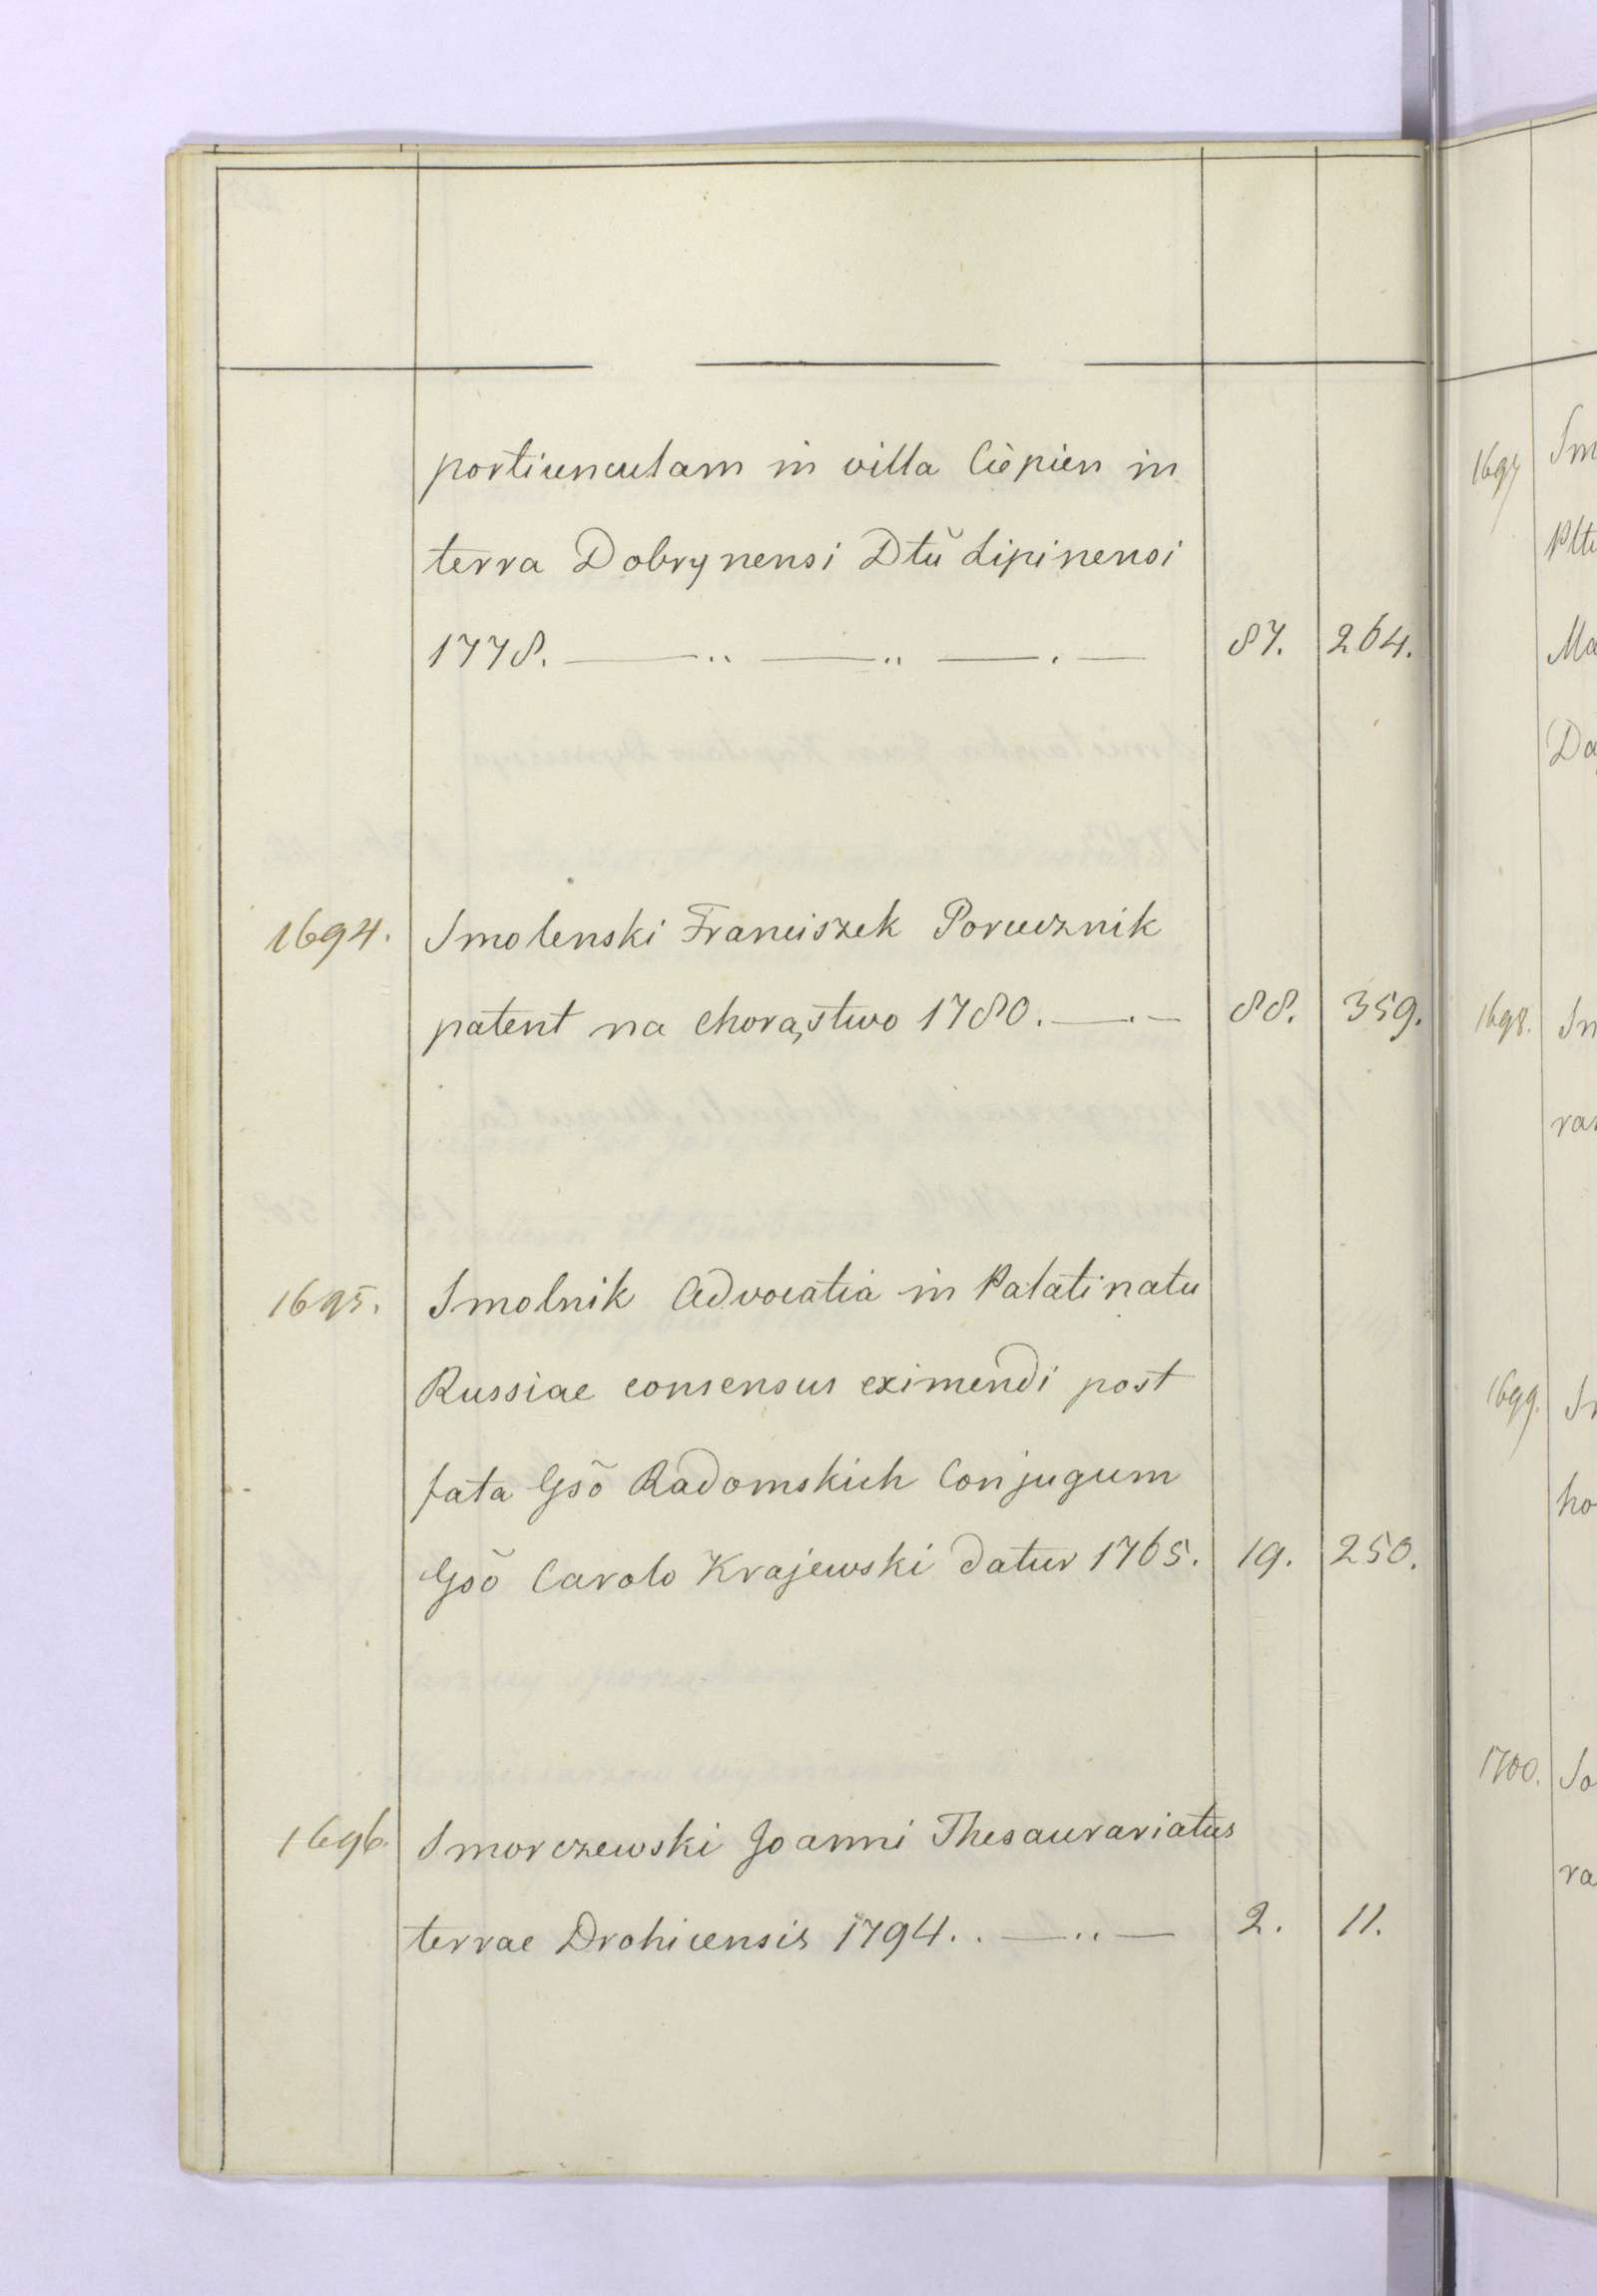 portiunculam in villa Ciepien in
terra Dobrynensi Dtũ Lipinensi
1778. 87. 264.
1694. Smolenski Franciszek Porucznik
patent na chorąstwo 1780. 88. 359.
1695. Smolnik Advocatia in Palatinatu
Russiae consensus eximendi post
fata Gsõ Radomskich Conjugum
Gsõ Carolo Krajewski datur 1765. 19. 250.
1696. Smorczewski Joanni Thesaurariatus
terrae Drohicensis 1794. 2. 11.
1697
1698.
1699.
1700.